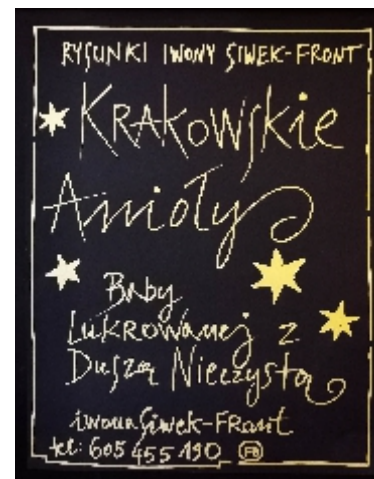 RYSUNKI IWONY SIWEK-FRONT
KRAKOWSKIE
Anioły
Baby
LUKROWANEJ Z
Duszą Nieczystą
iwona Siwek-FRont
tel: 605 455 190 FB